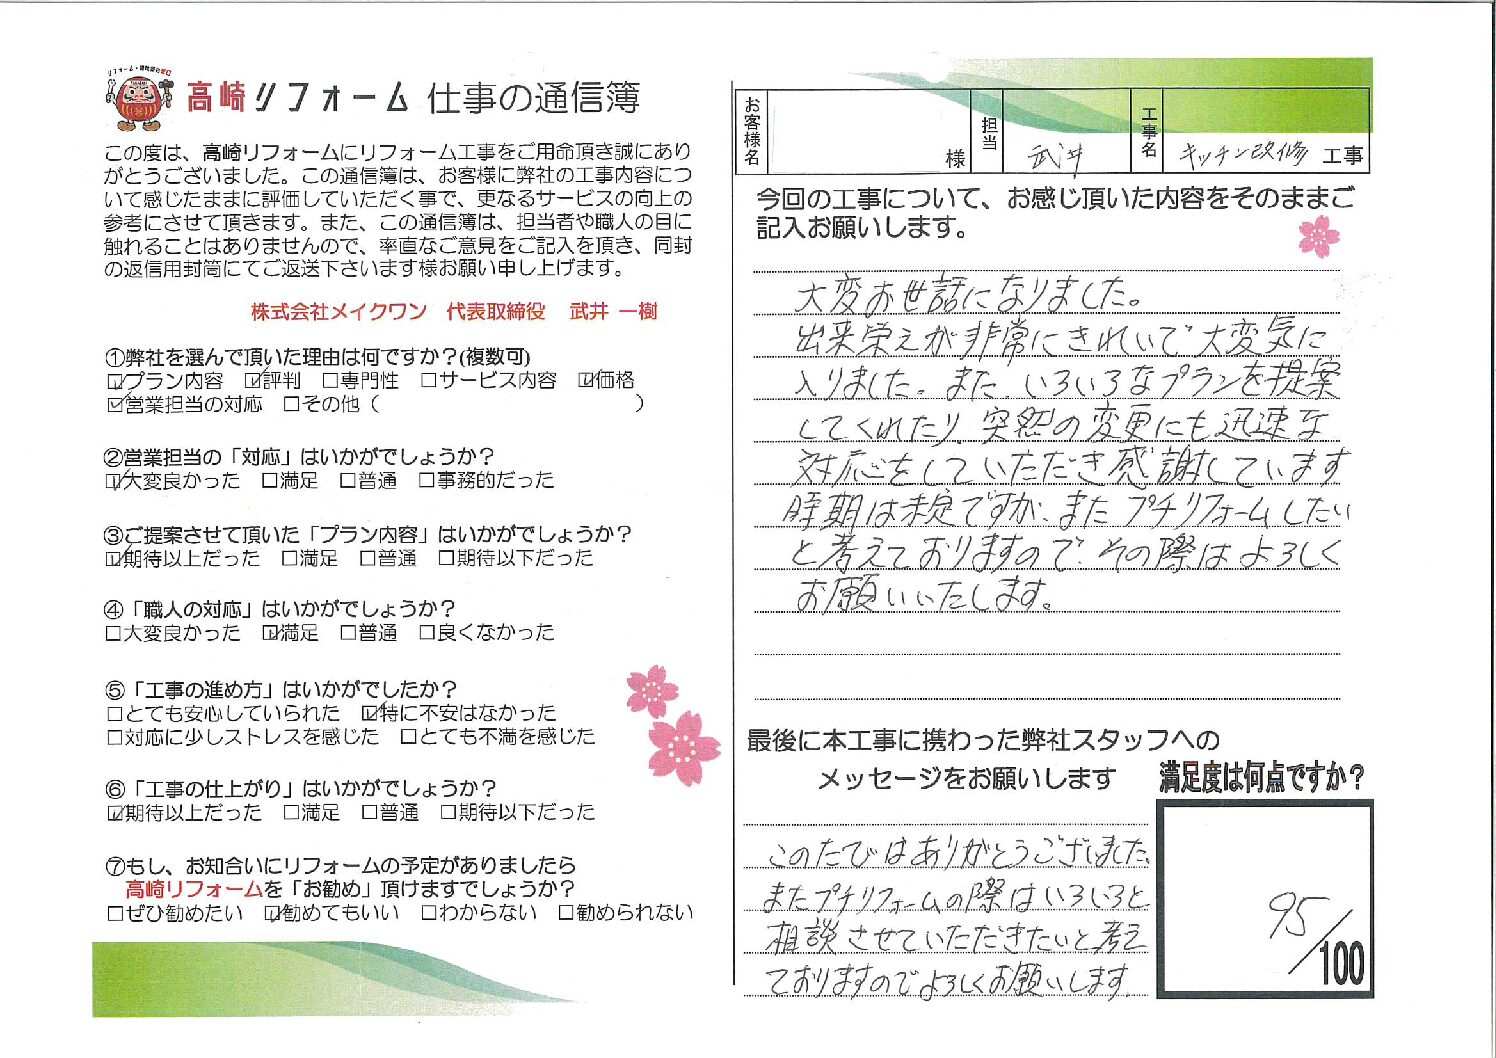 リフォーム・増改築の窓口
高崎リフォーム 仕事の通信簿
この度は、高崎リフォームにリフォーム工事をご用命頂き誠にあり
がとうございました。この通信簿は、お客様に弊社の工事内容につ
いて感じたままに評価していただく事で、更なるサービスの向上の
参考にさせて頂きます。また、この通信簿は、担当者や職人の目に
触れることはありませんので、率直なご意見をご記入を頂き、同封
の返信用封筒にてご返送下さいます様お願い申し上げます。
株式会社メイクワン 代表取締役 武井 一樹
①弊社を選んで頂いた理由は何ですか？(複数可)
☑プラン内容 ☑評判 □専門性 □サービス内容 ☑価格
☑営業担当の対応 □その他（ ）
②営業担当の「対応」はいかがでしょうか？
☑大変良かった □満足 □普通 □事務的だった
③ご提案させて頂いた「プラン内容」はいかがでしょうか？
☑期待以上だった □満足 □普通 □期待以下だった
④「職人の対応」はいかがでしょうか？
□大変良かった ☑満足 □普通 □良くなかった
⑤「工事の進め方」はいかがでしたか？
□とても安心していられた ☑特に不安はなかった
□対応に少しストレスを感じた □とても不満を感じた
⑥「工事の仕上がり」はいかがでしょうか？
☑期待以上だった □満足 □普通 □期待以下だった
⑦もし、お知合いにリフォームの予定がありましたら
高崎リフォームを「お勧め」頂けますでしょうか？
□ぜひ勧めたい ☑勧めてもいい □わからない □勧められない
お客様名 様 担当 武井 工事名 キッチン改修 工事
今回の工事について、お感じ頂いた内容をそのままご
記入お願いします。
大変お世話になりました。
出来栄えが非常にきれいで大変気に
入りました。また、いろいろなプランを提案
してくれたり、突然の変更にも迅速な
対応をしていただき感謝しています
時期は未定ですが、またプチリフォームしたい
と考えておりますので、その際はよろしく
お願いいたします。
最後に本工事に携わった弊社スタッフへの
メッセージをお願いします
このたびはありがとうございました。
またプチリフォームの際はいろいろと
相談させていただきたいと考え
ておりますのでよろしくお願いします。
満足度は何点ですか？
95/100